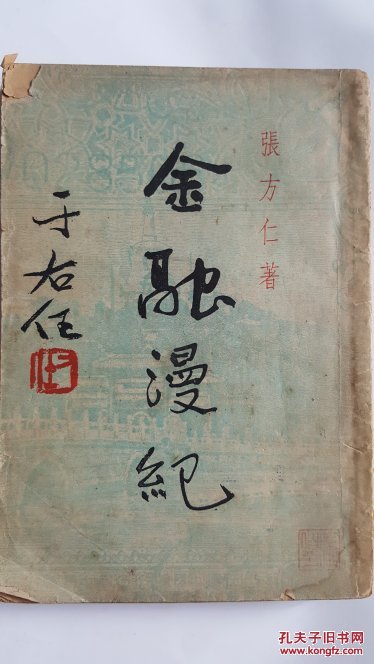 張方仁著
金融漫紀
于右任
孔夫子旧书网
www.kongfz.com